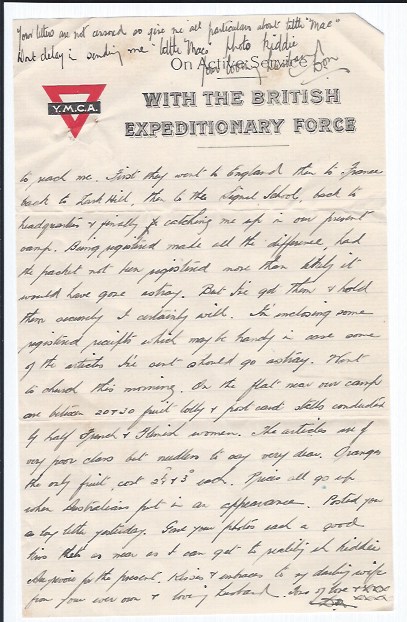 "Your letters are not censored so give me all particulars about little "Mac"
Dont delay in sending me "little Mac's" photo Kiddie
On Active Service
Your loving
Y.M.C.A.
WITH THE BRITISH
EXPEDITIONARY FORCE
to reach me. First they went to England then to France
back to Lark Hill, then to the Signal School, back to
headquarters & finally catching me up in our present
camp. Being registered made all the difference, had
the packet not been registered more than likely it
would have gone astray. But I've got them & hold
them securely I certainly will. I'm enclosing some
registered receipts which may be handy in case some
of the articles I've sent should go astray. Went
to church this morning. On the flat near our camp
are between 20 & 30 fruit lolly & post card stalls conducted
by half French & Flemish women. The articles are of
very poor class but needless to say very dear. Oranges
the only fruit, cost 2½ & 3ᴰ each. Prices all go up
when Australians put in an appearance. Posted you
a long letter yesterday. Give your photos each a good
kiss thats as near as I can get to reality eh Kiddie
Au revoir for the present. Kisses & embraces to my darling wife
from your ever own & loving husband. of love & xxxx